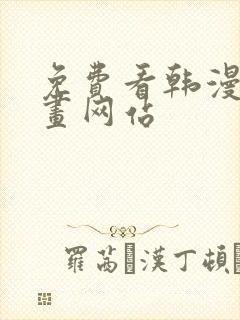 免費看韩漫
畫网站
羅茜·漢丁頓·